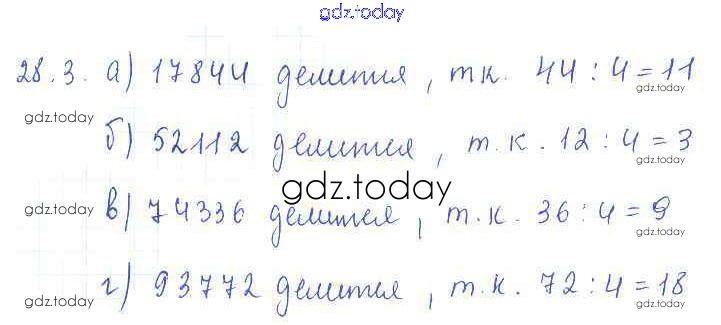 gdz.today
28.3. а) 17844 делится, т.к. 44 : 4 = 11
gdz.today
gdz.today
б) 52112 делится, т.к. 12 : 4 = 3
gdz.today
gdz.today
в) 74336 делится, т.к. 36 : 4 = 9
gdz.today
gdz.today
г) 93772 делится, т.к. 72 : 4 = 18
gdz.today
gdz.today